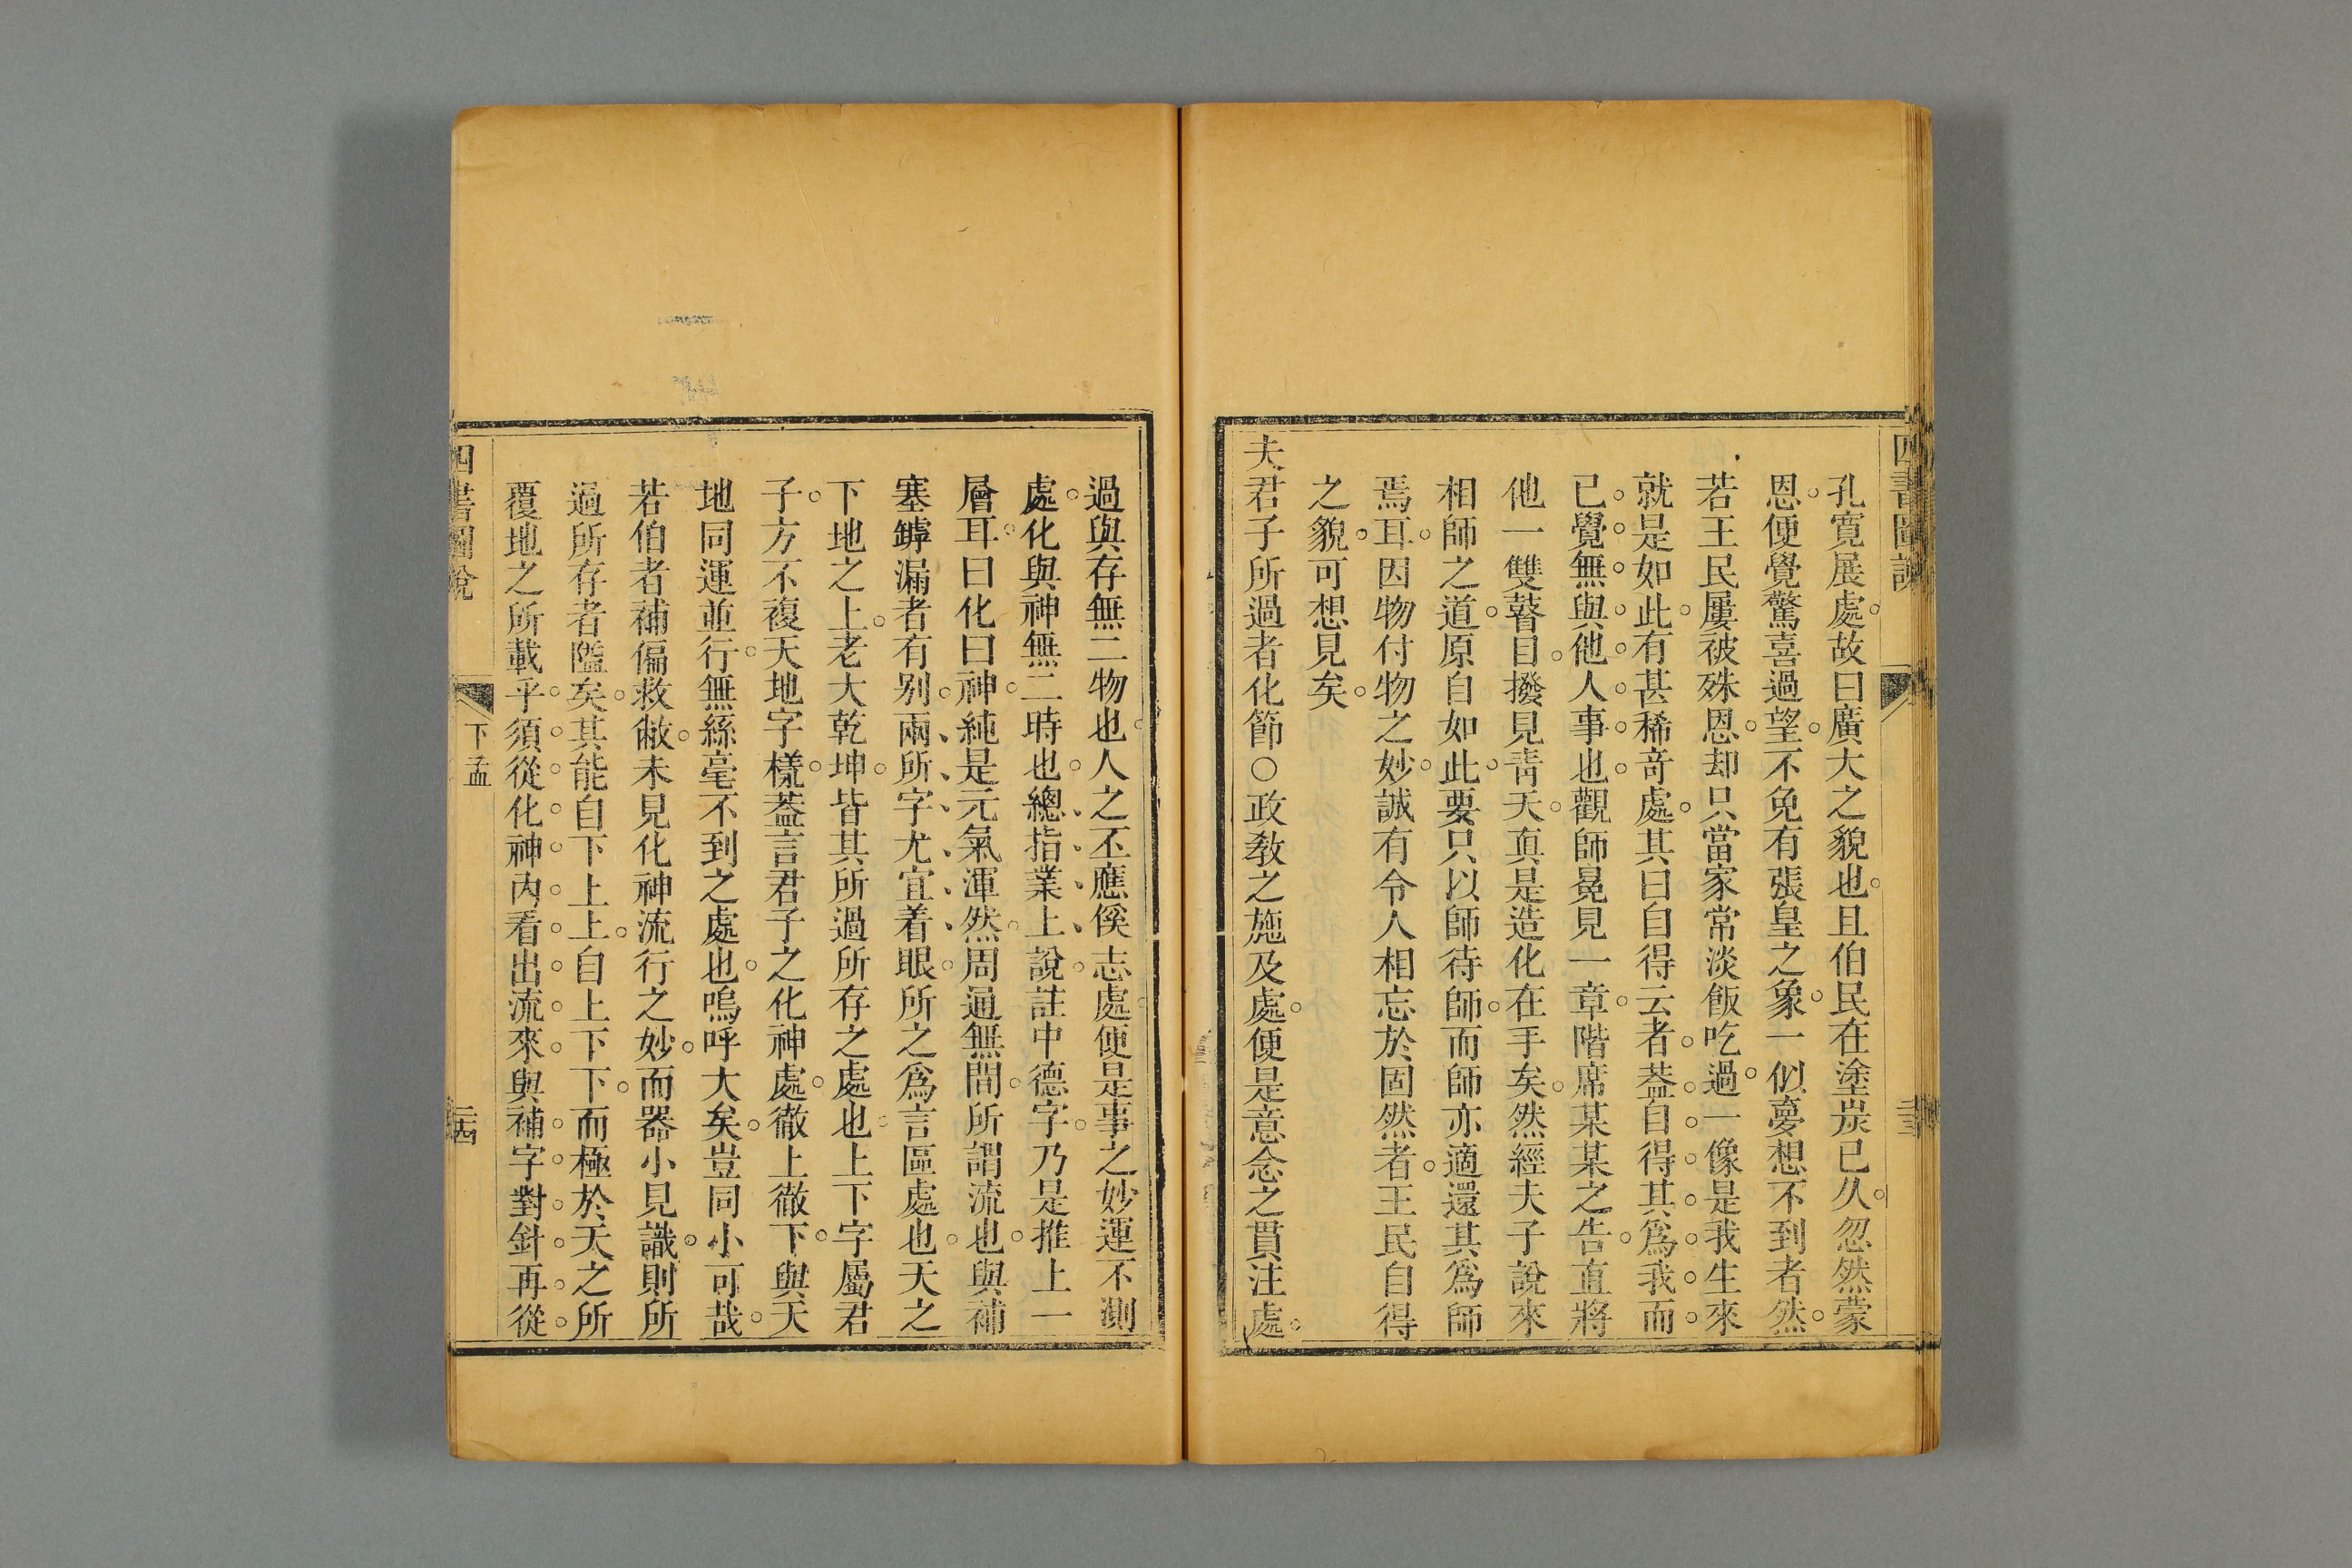 四書圖說
孔寬展處故曰廣大之貌也且伯民在塗炭已久忽然蒙
恩便覺驚喜過望不免有張皇之象一似夢想不到者然
若王民屢被殊恩却只當家常淡飯吃過一像是我生來
就是如此有甚稀奇處其曰自得云者葢自得其爲我而
已覺無與他人事也觀師冕見一章階席某某之告直將
他一雙瞽目撥見靑天眞是造化在手矣然經夫子說來
相師之道原自如此要只以師待師而師亦適還其爲師
焉耳因物付物之妙誠有令人相忘於固然者王民自得
之貌可想見矣
夫君子所過者化節○政敎之施及處便是意念之貫注處
過與存無二物也人之丕應徯志處便是事之妙運不測
處化與神無二時也總指業上說註中德字乃是推上一
層耳曰化曰神純是元氣渾然周通無間所謂流也與補
塞罅漏者有别兩所字尤宜着眼所之爲言區處也天之
下地之上老大乾坤皆其所過所存之處也上下字屬君
子方不複天地字樣葢言君子之化神處徹上徹下與天
地同運並行無絲毫不到之處也嗚呼大矣豈同小可哉
若伯者補偏救敝未見化神流行之妙而器小見識則所
過所存者隘矣其能自下上上自上下下而極於天之所
覆地之所載乎須從化神內看出流來與補字對針再從
四書圖說
下孟